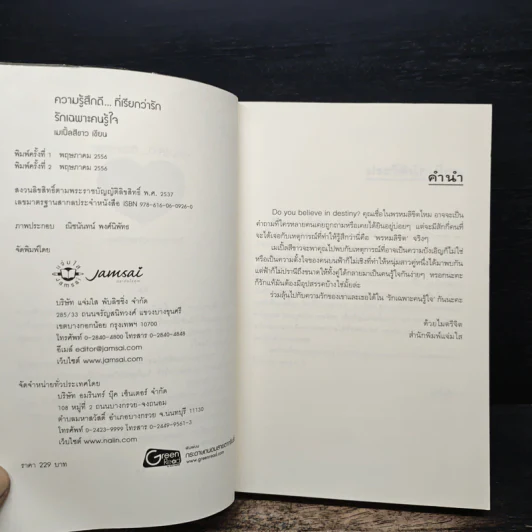 ความรู้สึกดี... ที่เรียกว่ารัก
รักเฉพาะคนรู้ใจ
เมเปิ้ลสีขาว เขียน
พิมพ์ครั้งที่ 1 พฤษภาคม 2556
พิมพ์ครั้งที่ 2 พฤษภาคม 2556
สงวนลิขสิทธิ์ตามพระราชบัญญัติลิขสิทธิ์ พ.ศ. 2537
เลขมาตรฐานสากลประจำหนังสือ ISBN 978-616-06-0926-0
ภาพประกอบ ณิชนันทน์ พงศ์นิพัทธ
จัดพิมพ์โดย
jamsai
บริษัท แจ่มใส พับลิชชิ่ง จำกัด
285/33 ถนนจรัญสนิทวงศ์ แขวงบางขุนศรี
เขตบางกอกน้อย กรุงเทพฯ 10700
โทรศัพท์ 0-2840-4800 โทรสาร 0-2840-4848
อีเมล์ editor@jamsai.com
เว็บไซต์ www.jamsai.com
จัดจำหน่ายทั่วประเทศโดย
บริษัท อมรินทร์ บุ๊ค เซ็นเตอร์ จำกัด
108 หมู่ที่ 2 ถนนบางกรวย-จงถนอม
ตำบลมหาสวัสดิ์ อำเภอบางกรวย จ.นนทบุรี 11130
โทรศัพท์ 0-2423-9999 โทรสาร 0-2449-9561-3
เว็บไซต์ www.naiin.com
Green Read
กระดาษถนอมสายตา
www.greenread.com
ราคา 229 บาท
คำนำ
Do you believe in destiny? คุณเชื่อในพรหมลิขิตไหม อาจจะเป็น
คำถามที่ใครหลายคนเคยถูกถามหรือเคยได้ยินอยู่บ่อยๆ แต่จะมีสักกี่คนที่
จะได้เจอกับเหตุการณ์ที่ทำให้รู้สึกว่านี่คือ 'พรหมลิขิต' จริงๆ
เมเปิ้ลสีขาวจะพาคุณไปพบกับเหตุการณ์ที่อาจเป็นความบังเอิญก็ไม่ใช่
หรือเป็นความตั้งใจของคนบนฟ้าก็ไม่เชิงที่ทำให้หนุ่มสาวคู่หนึ่งได้มาพบกัน
แต่ฟ้าก็ไม่ปรานีถึงขนาดให้ทั้งคู่ได้กลายมาเป็นคนรู้ใจกันง่ายๆ หรอกนะคะ
ก็รักแท้มันต้องมีอุปสรรคบ้างใช่มั้ยล่ะ
ร่วมลุ้นไปกับความรักของเขาและเธอได้ใน 'รักเฉพาะคนรู้ใจ' กันนะคะ
ด้วยไมตรีจิต
สำนักพิมพ์แจ่มใส